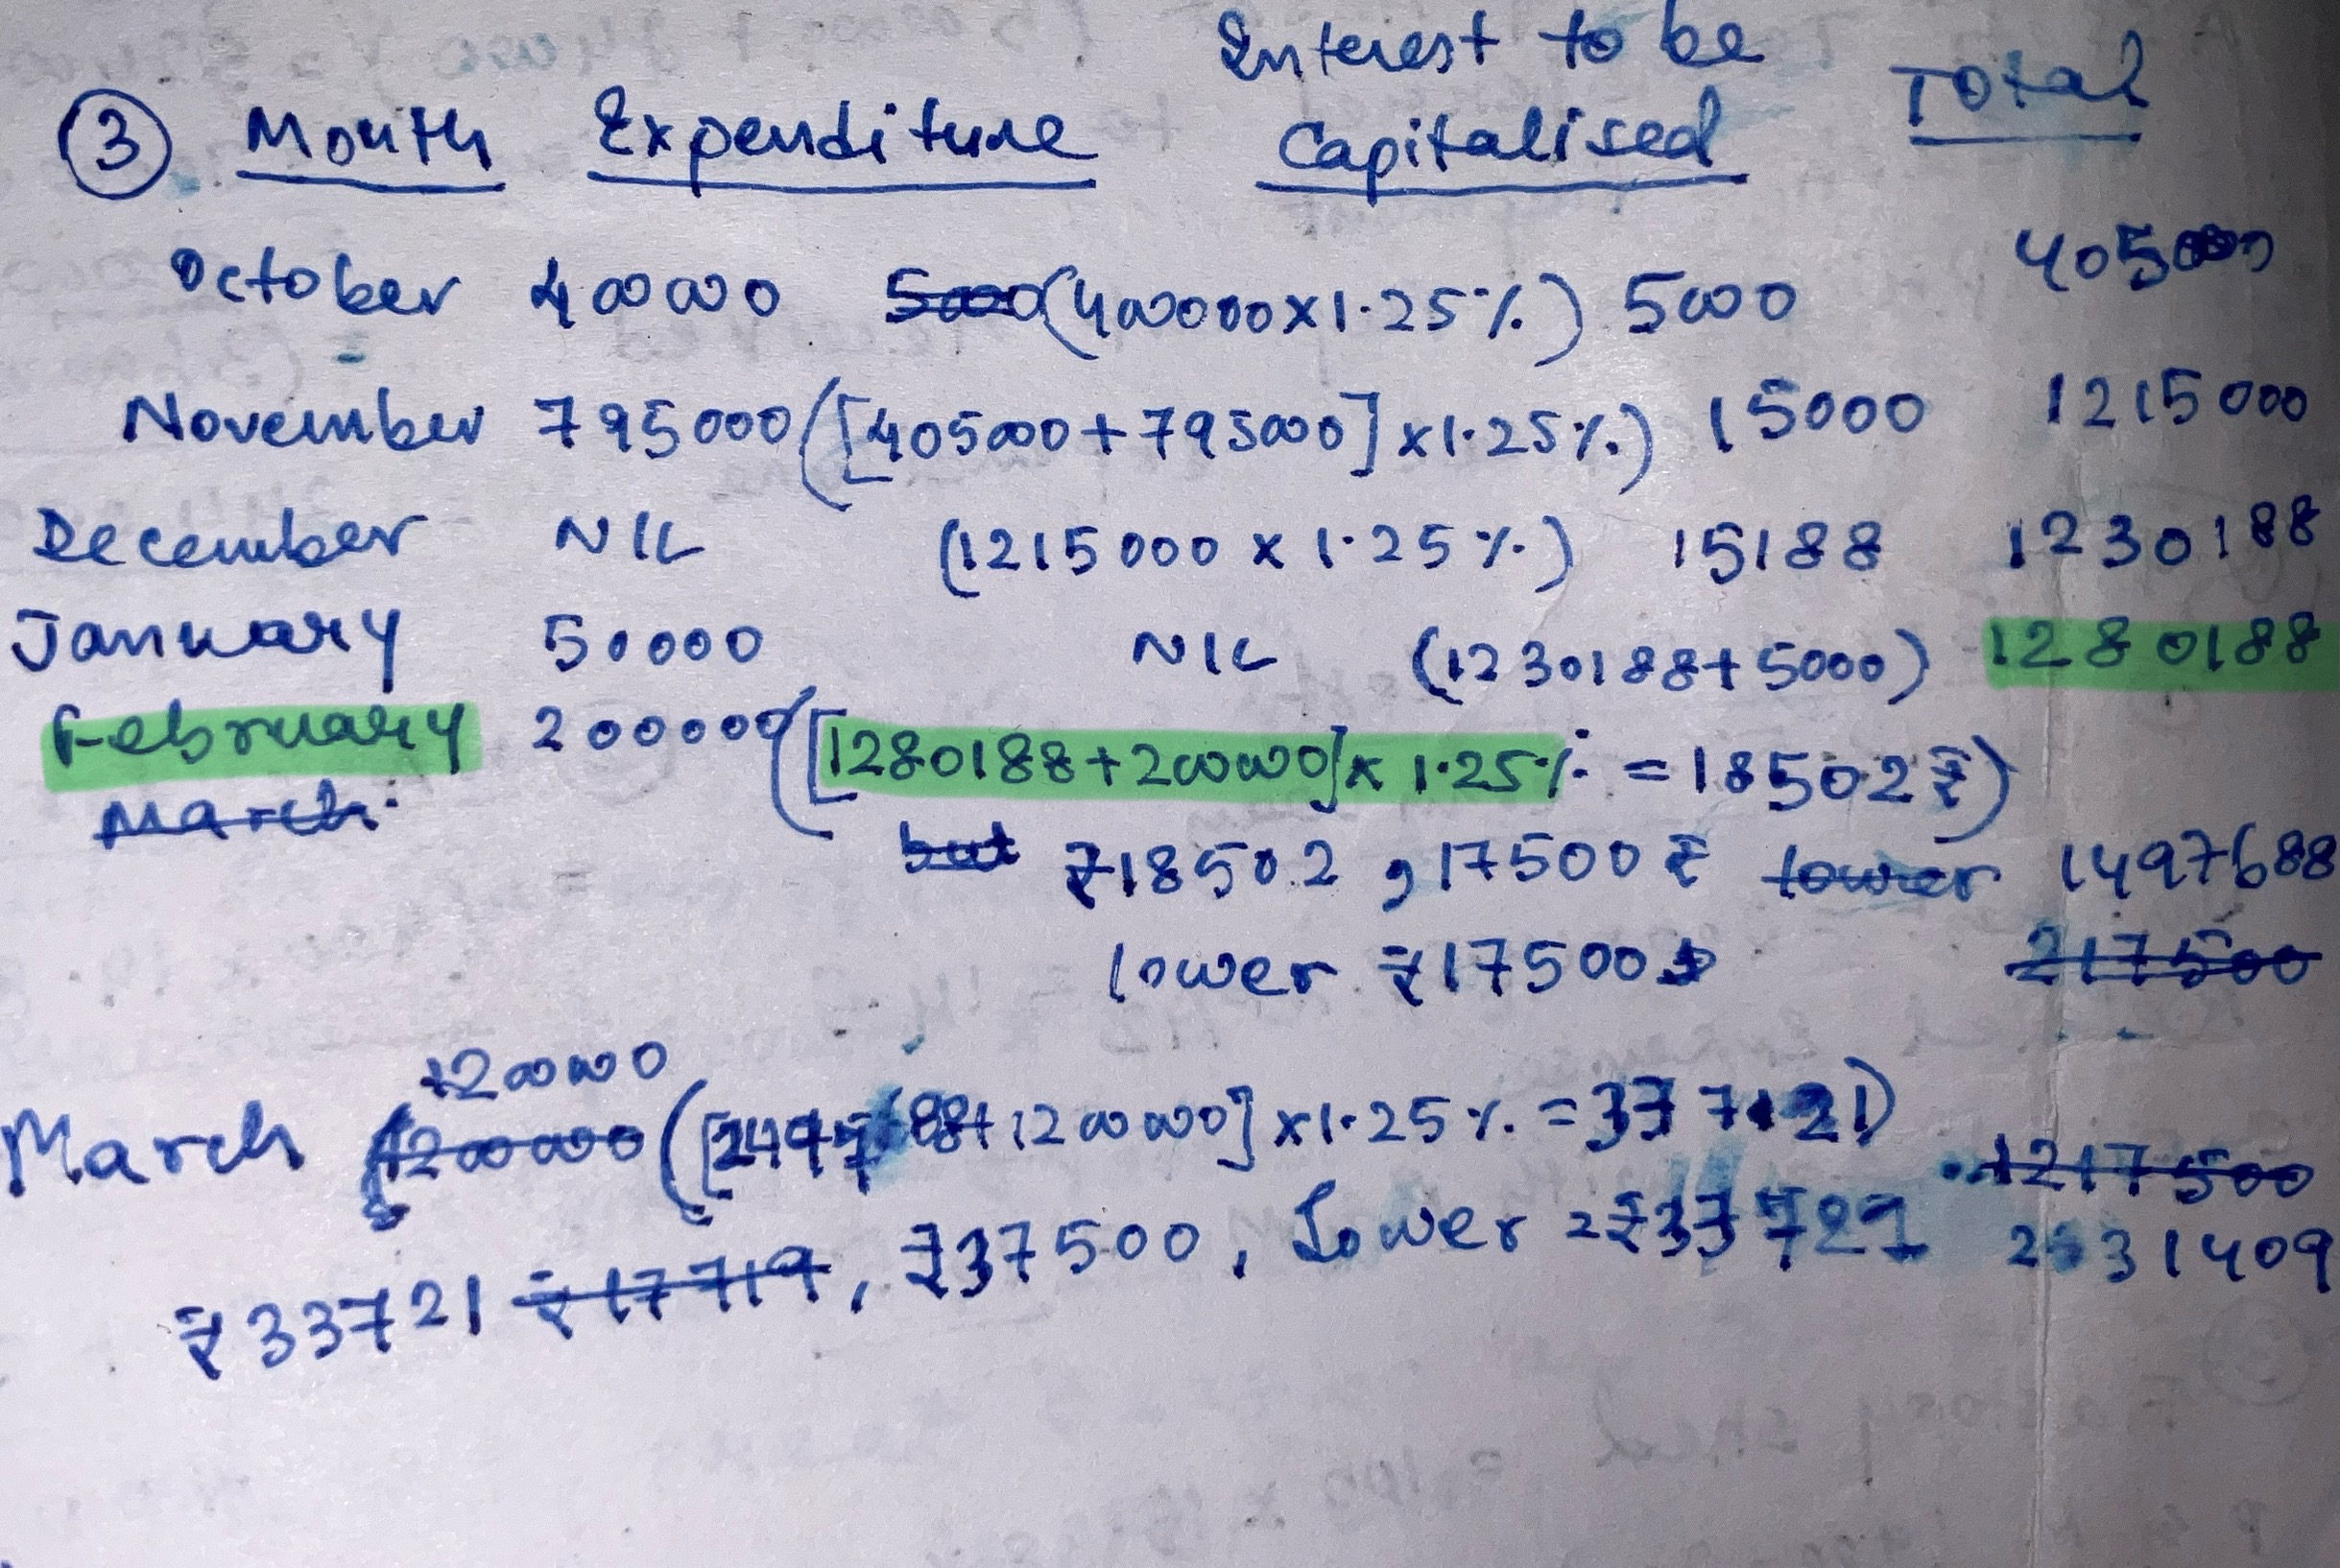 Interest to be
③ Month Expenditure Capitalised Total
October 400000 5000 (400000×1.25%) 5000 405000
November 795000 ([405000+795000]×1.25%) 15000 1215000
December NIL (1215000 × 1.25%) 15188 1230188
January 50000 NIL (1230188+5000) 1280188
February 200000 ([1280188+200000]× 1.25% = 18502₹)
March
but ₹18502, 17500₹ lower 1497688
lower ₹17500 217500
1200000
March 1200000 ( +1200000]×1.25% = ) 1217500
₹33721 ₹17719, ₹37500, Lower = ₹33721 1409